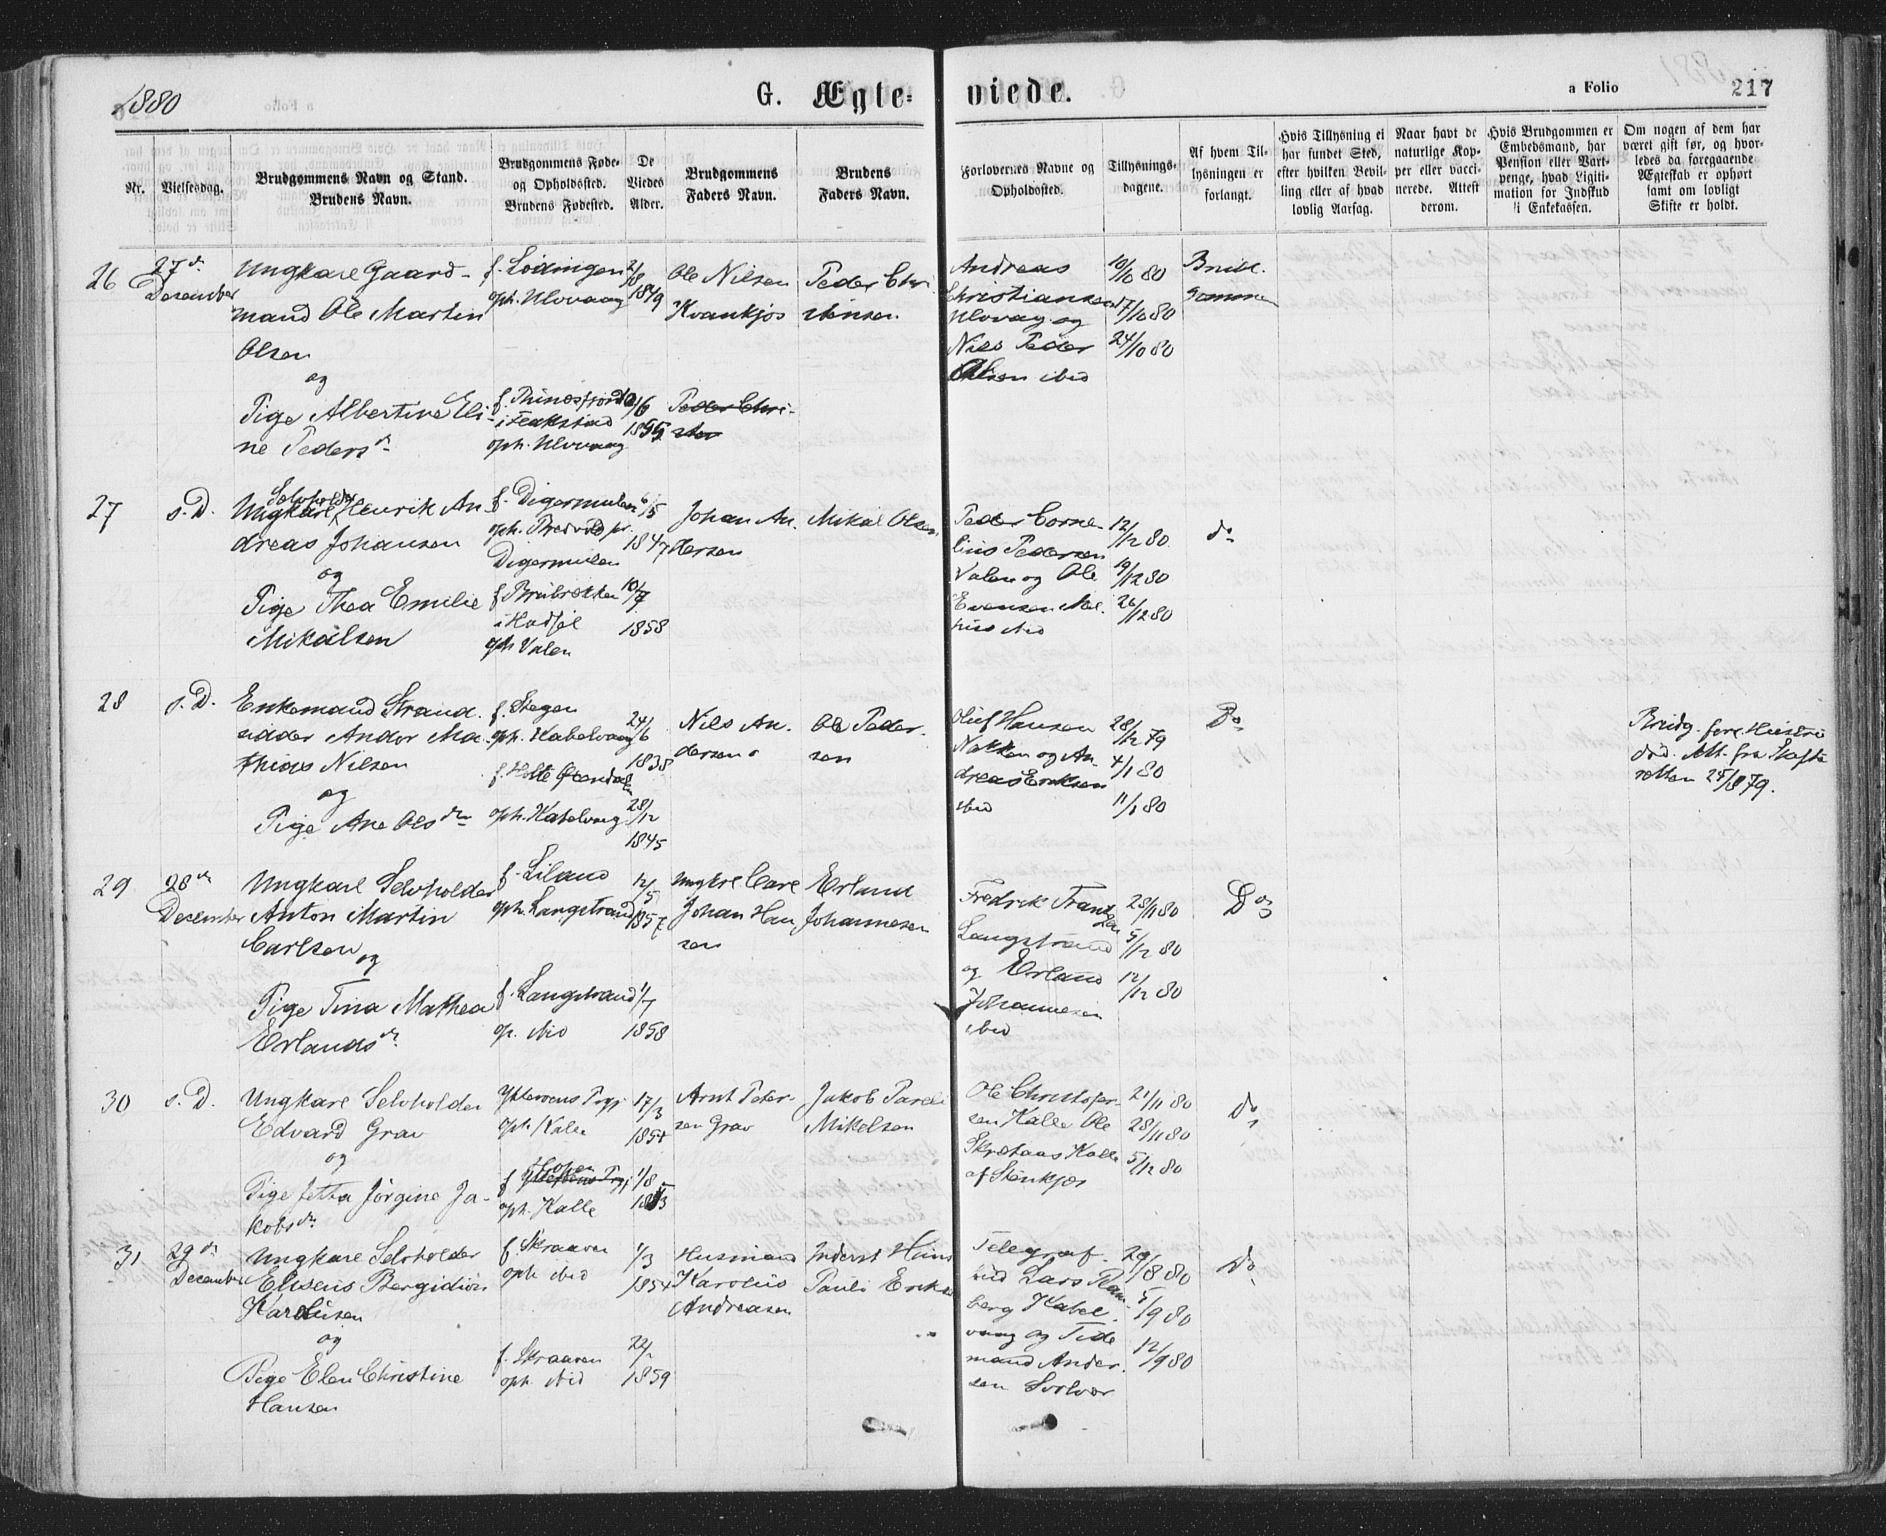 1880
G. Ægte=
viede.
a Folio
217
Nr.
Vielsesdag.
Brudgommens Navn og Stand.
Brudens Navn.
Brudgommens Føde-
og Opholdssted.
Brudens Fødested.
De
Viedes
Alder.
Brudgommens
Faders Navn.
Brudens
Faders Navn.
Forlovernes Navne og
Opholdssted.
Tillysnings-
dagene.
Af hvem Til-
lysningen er
forlangt.
Hvis Tillysning ei
har fundet Sted,
efter hvilken Bevil-
ling eller af hvad
lovlig Aarsag.
Naar havt de
naturlige Kop-
per eller vacci-
nerede. Attest
derom.
Hvis Brudgommen er
Embedsmand, har
Pension eller Vart-
penge, hvad Legiti-
mation for Indskud
i Enkekassen.
Om nogen af dem har
været gift før, og hvor-
ledes da foregaaende
Ægteskab er ophørt
samt om lovligt
Skifte er holdt.
26
27de
December
Ungkarl Gaard-
mand Ole Martin
Olsen
og
Pige Albertine Eli-
ne Pedersdr
f. Lødingen
oph. Ulvvaag
1849
oph. Ulvvaag
1855
Ole Nilsen
Kvankjos
Peder Chri
stensen
Peder Chri-
Andreas
Christiansen
Ulvvag og
Nils Peder
Olsen ibid
10/10 80
17/10 80
24/10 80
27
s. D.
Selvholder
Ungkarl Henrik An
dreas Johansen
og
Pige Thea Emilie
Mikalsen
f. Digermulen
Digermulen
i Hadsel
oph Valen
6/5
1847
10/7
1858
Johan An.
dersen
Mikal Olsen
Peder Corne-
lius Pedersen
Valen og Ole
Evensen
ibid
12/12 80
19/12 80
26/12 80
do
28
s. D.
Enkemand Strand.
sidder Andor Ma
thias Nilsen
og
Pige Ane Olsdtr
f. Stegen
oph. Kabelvaag
oph. Kabelvaag
24/6
1838
28/12
1845
Nils An.
dersen
Ole Peder.
sen
Oluf Hansen
og An
dreas Eriksen
ibid
28/12 79
4/1 80
11/1 80
Do
Bridg. fore. Hustru
død. Att. fra Skifte
retten 25/8 79.
29
28de
December
Ungkarl Selvholder
Anton Martin
Carlsen
og
Pige Tina Mathea
Erlandsdr
f. Liland
oph. Langstrand
f. Langstrand
op. ibid
12/5
1857
1/7
1858
Johan Han
sen
Erland
Johannesen
Fredrik Frantz
sen
Langstrand
og Erland
Johannesen
ibid
28/11 80
5/12 80
12/12 80
Do
30
s. D.
Ungkarl Selvholder
Edvard Grav
og
Pige Jetta Jörgine Ja-
kobsdr
oph. Kalle
oph. Kalle
17/3
1854
1/8
Arnt Peter-
sen Grav
Jakob Pareli
Mikelsen
Ole Christofer-
sen Kalle Ole
Kalle
21/11 80
28/11 80
5/12 80
do
31
29de
December
Ungkarl Selvholder
Eliseus Bergidius
Karolusen
og
Pige Elen Christine
Hansen
f. Skraaven
oph ibid
f. Skraaven
oph ibid
1/3
1854
1859
Husmand
Karolius
Andreasen
Inderst Hans
Pauli Eriksen
Telegraf.
bud Lars Ram-
berg Kabel
vaag og Tide
mand Ander.
sen Svolvær
29/8 80
5/9 80
12/9 80
Do